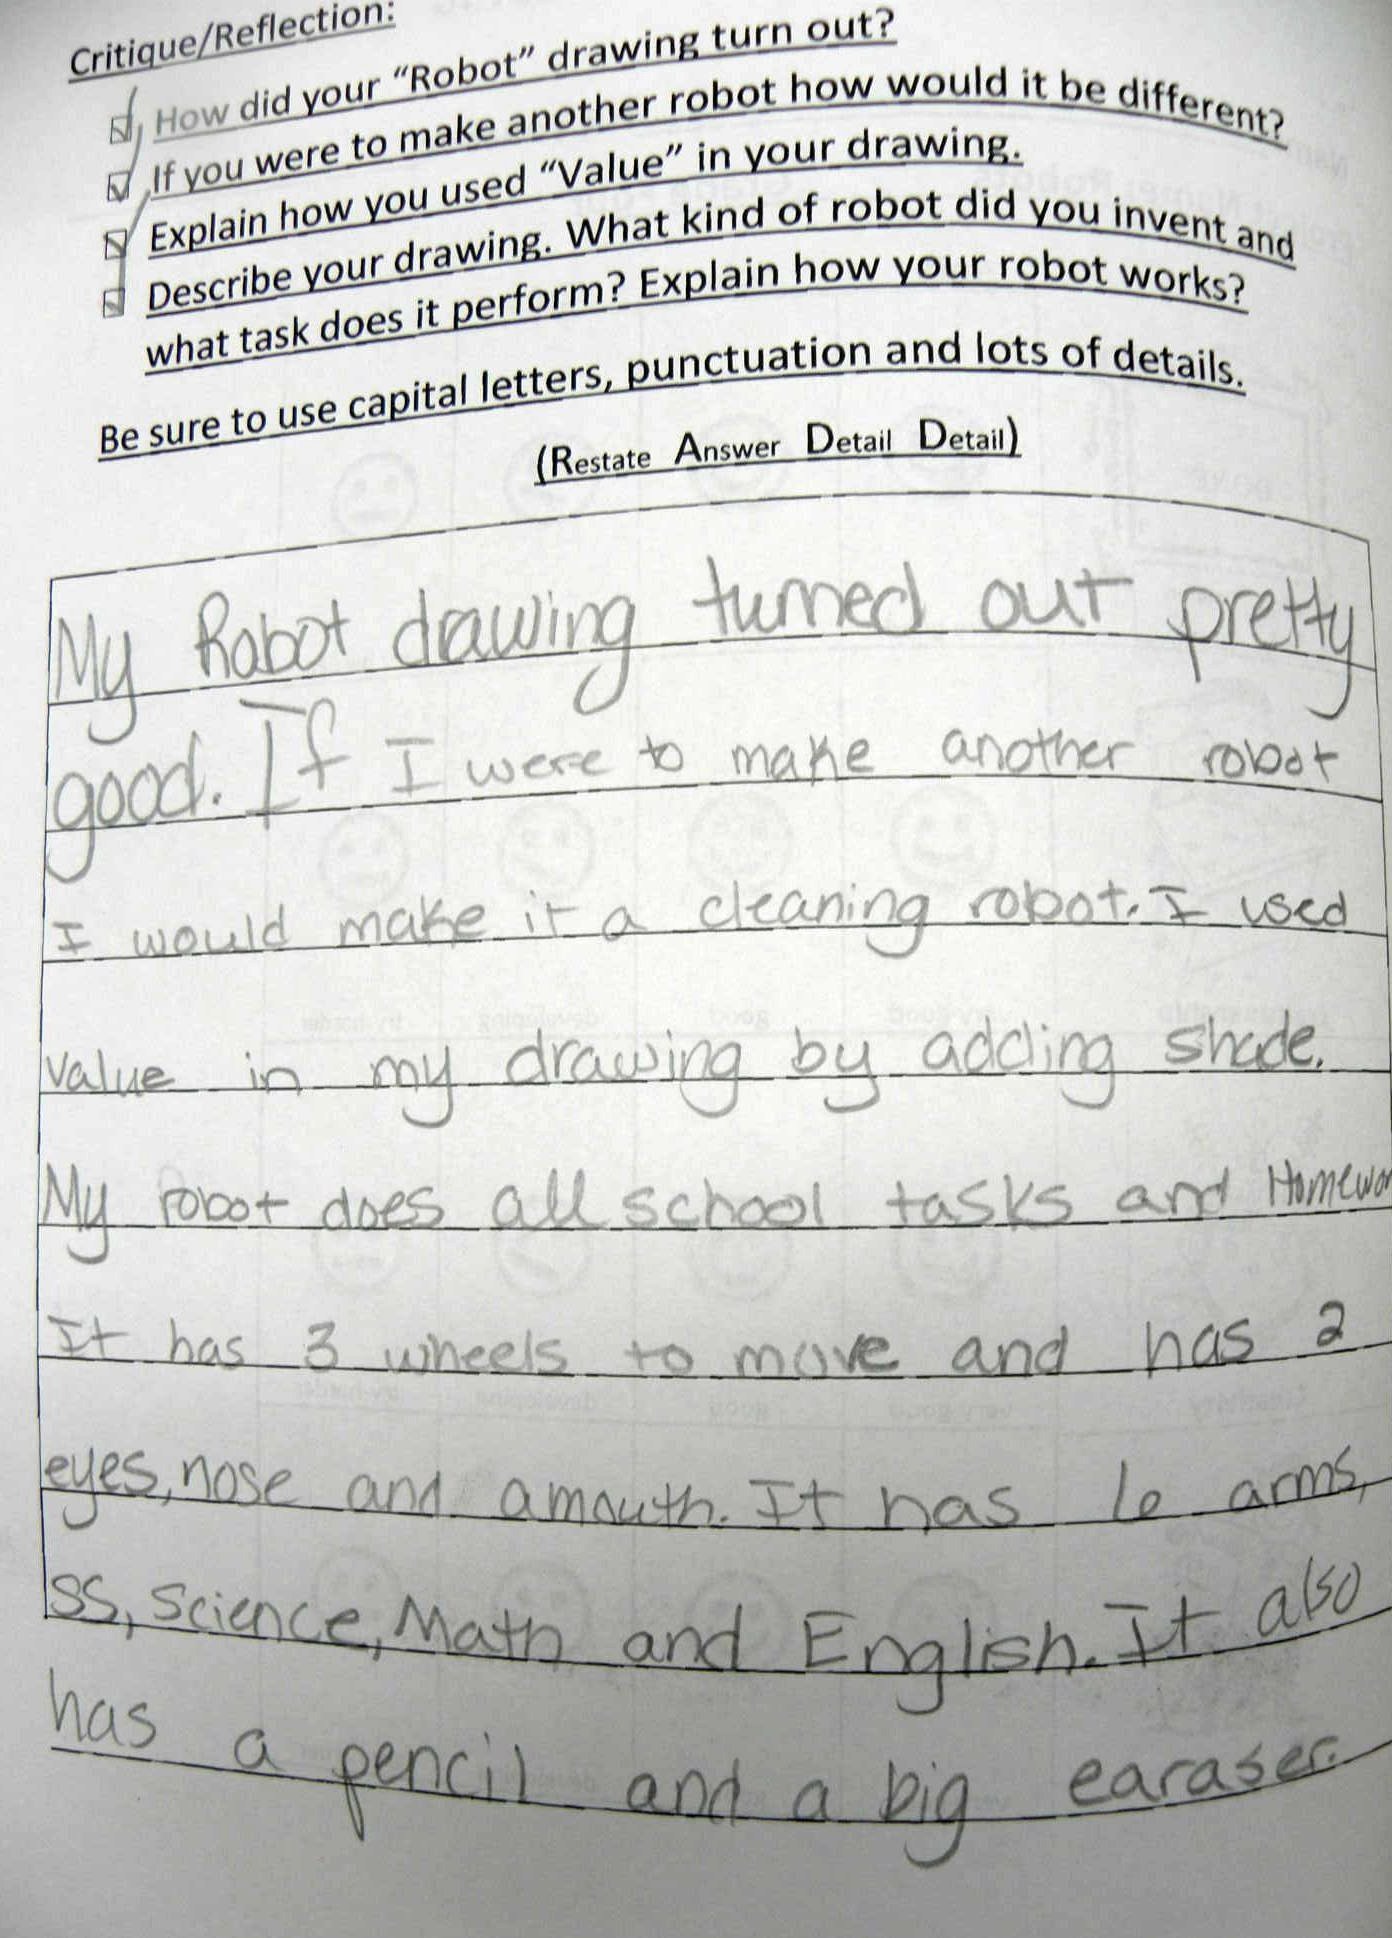 Critique/Reflection:
How did your “Robot” drawing turn out?
If you were to make another robot how would it be different?
Explain how you used “Value” in your drawing.
Describe your drawing. What kind of robot did you invent and
what task does it perform? Explain how your robot works?
Be sure to use capital letters, punctuation and lots of details.
(Restate Answer Detail Detail)
My Robot drawing turned out pretty
good. If I were to make another robot
I would make it a cleaning robot. I used
value in my drawing by adding shade.
My robot does all school tasks and Homewor
It has 3 wheels to move and has 2
eyes, nose and a mouth. It has 6 arms,
SS, Science, Math and English. It also
has a pencil and a big earaser.